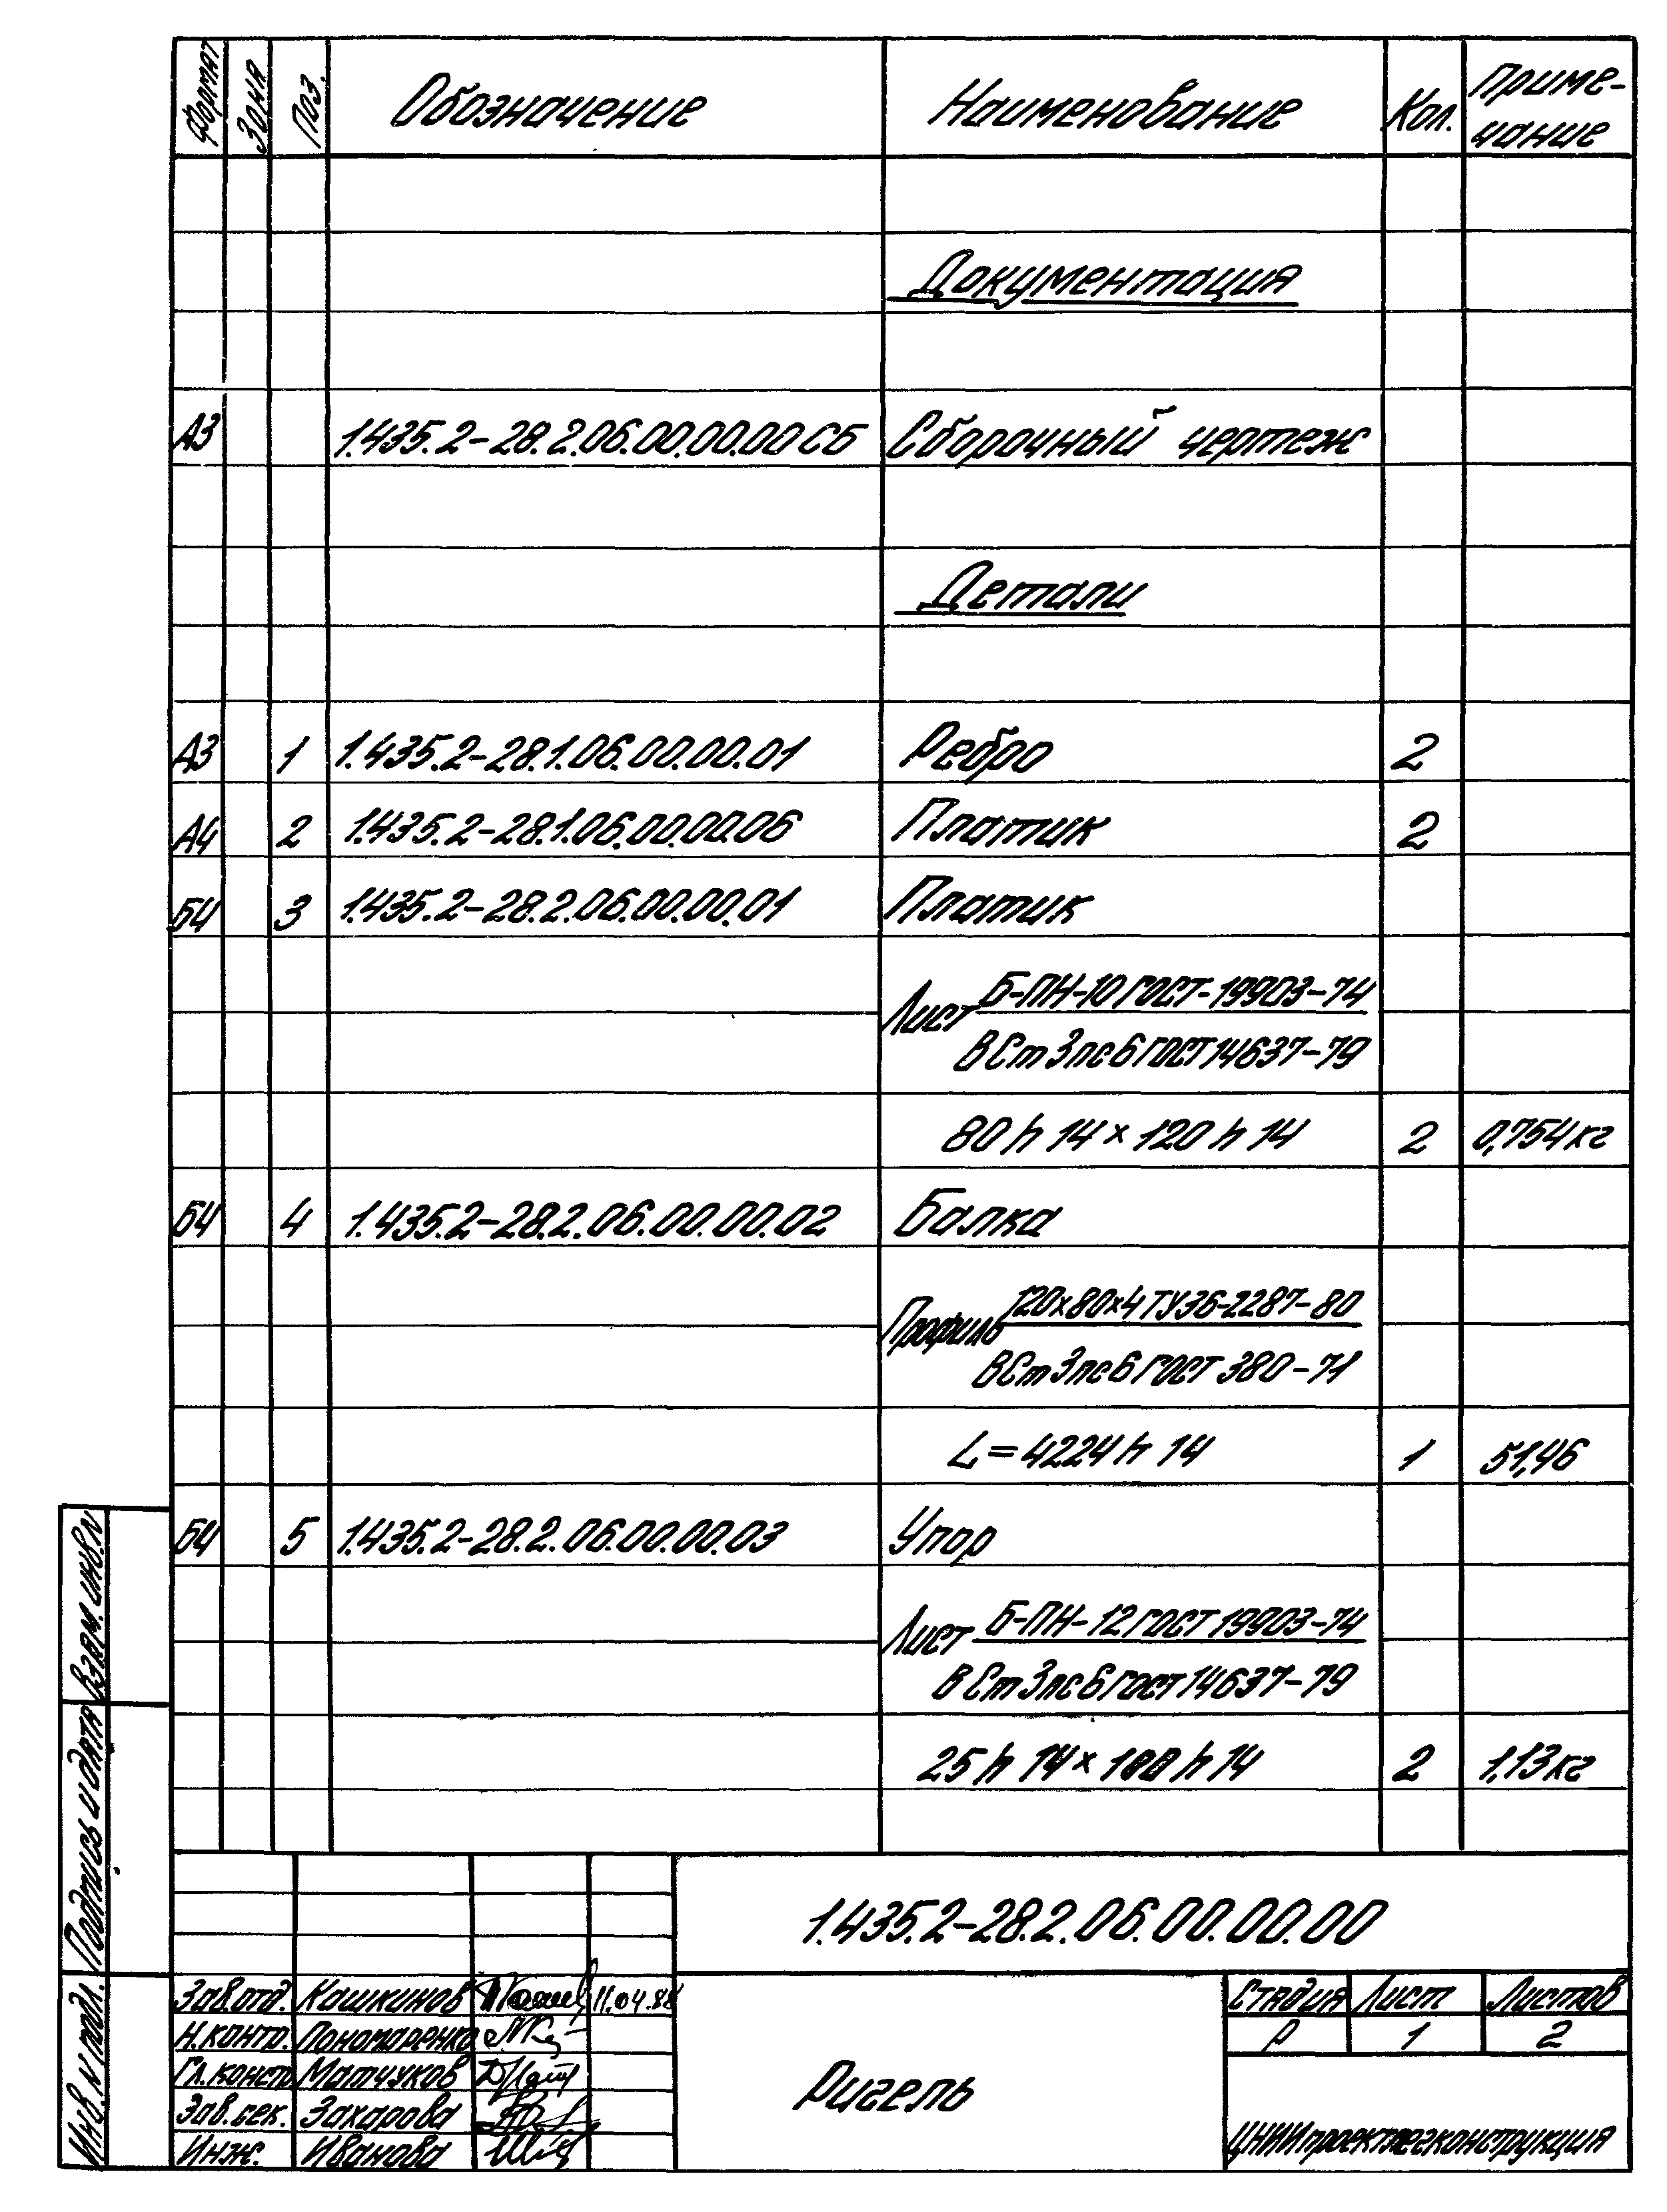 Формат Зона Поз. Обозначение Наименование Кол. Приме-
чание
Документация
А3 1.435.2-28.2.06.00.00.00 СБ Сборочный чертеж
Детали
А3 1 1.435.2-28.1.06.00.00.01 Ребро 2
А4 2 1.435.2-28.1.06.00.00.06 Платик 2
БЧ 3 1.435.2-28.2.06.00.00.01 Платик
Лист Б-ПН-10 ГОСТ-19903-74
ВСт3пс6 ГОСТ 14637-79
80 h 14 × 120 h 14 2 0,754 кг
БЧ 4 1.435.2-28.2.06.00.00.02 Балка
Профиль 120×80×4 ТУ36-2287-80
ВСт3пс6 ГОСТ 380-71
L=4224 h 14 1 51,46
БЧ 5 1.435.2-28.2.06.00.00.03 Упор
Лист Б-ПН-12 ГОСТ 19903-74
ВСт3пс6 ГОСТ 14637-79
25 h 14 × 100 h 14 2 1.13 кг
Взам. инв. N
Подпись и дата
Инв. N подл.
1.435.2-28.2.06.00.00.00
Зав.отд. Кашкинов 11.04.88
Н.контр. Пономаренко
Гл.констр. Матчуков
Зав.сек. Захарова
Инж. Иванова
Ригель
Стадия Лист Листов
Р 1 2
ЦНИИпроектлегконструкция